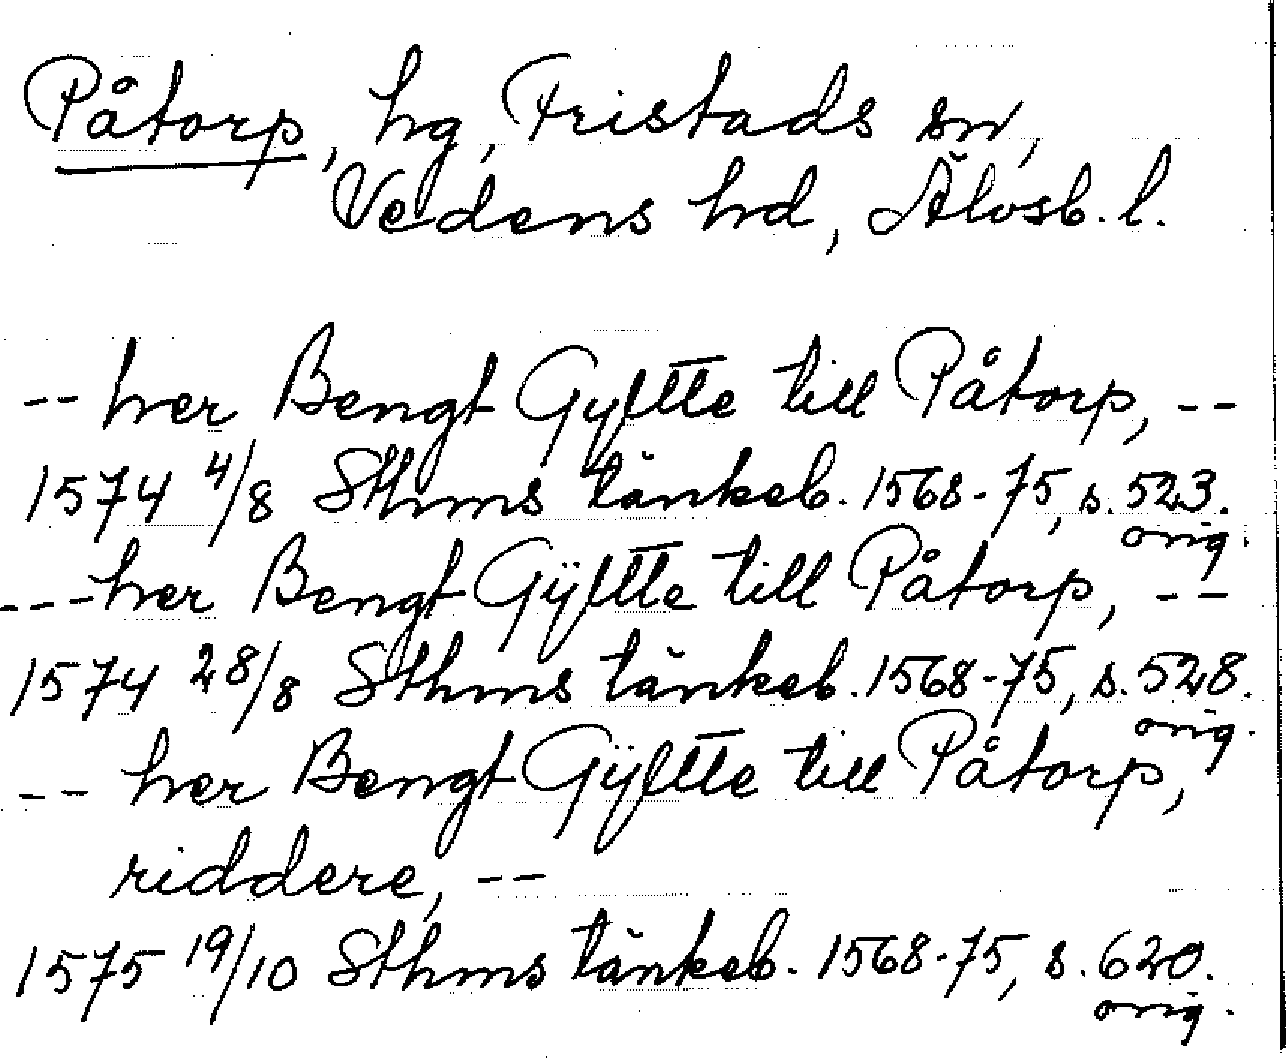 Påtorp, hg, Fristads sn,
Vedens hd, Älvsb. l.
-- her Bengt Gyltte till Påtorp, --
1574 4/8 Sthms tänkeb. 1568-75, s. 523.
orig.
--- her Bengt Gÿltte till Påtorp, --
1574 28/8 Sthms tänkeb. 1568-75, s. 528.
orig.
-- her Bengt Gÿltte till Påtorp,
riddere, --
1575 19/10 Sthms tänkeb. 1568-75, s. 620.
orig.